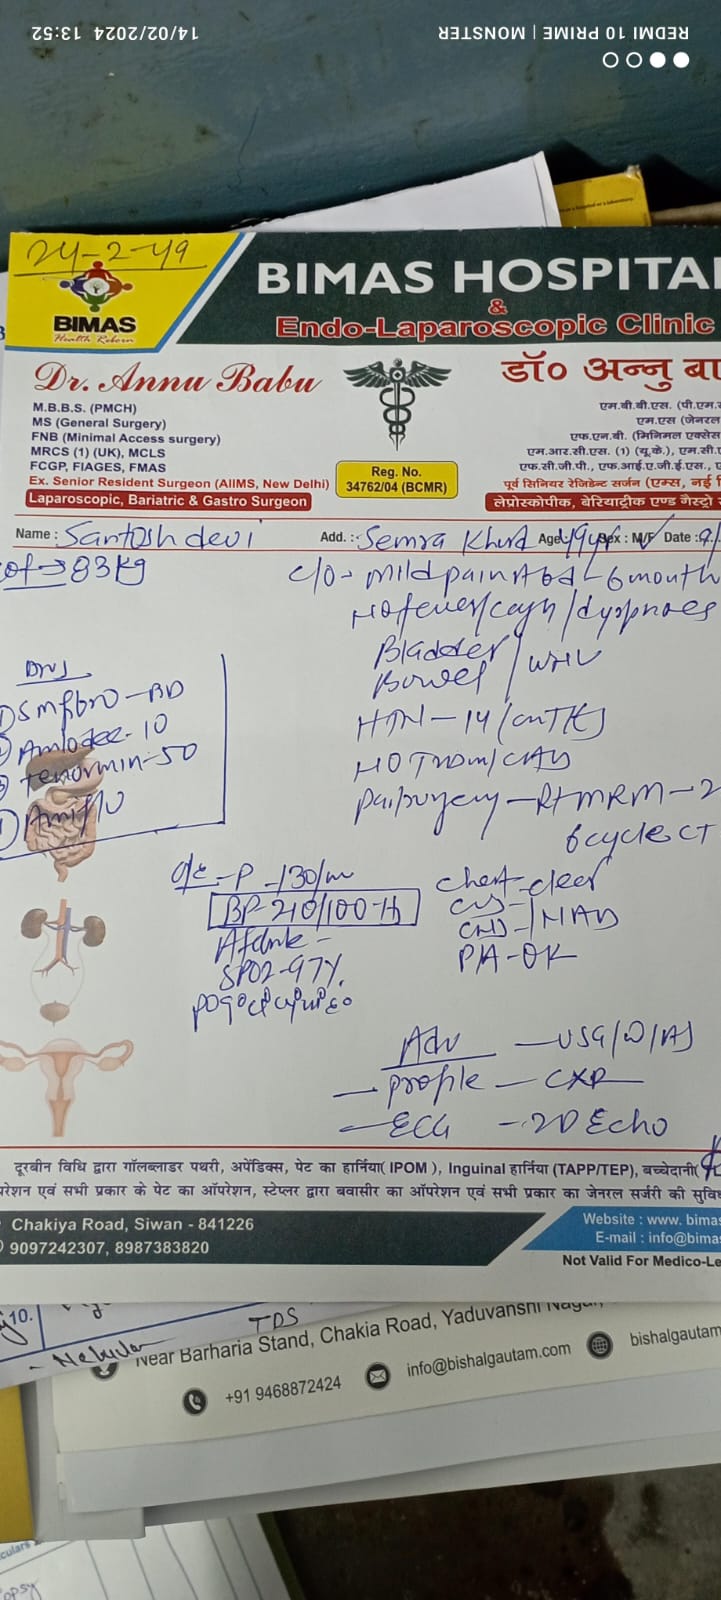 14/02/2024 13:52
REDMI 10 PRIME | MONSTER
24-2-49
BIMAS
Health Reborn
BIMAS HOSPITAL
&
Endo-Laparoscopic Clinic
Dr. Annu Babu
M.B.B.S. (PMCH)
MS (General Surgery)
FNB (Minimal Access surgery)
MRCS (1) (UK), MCLS
FCGP, FIAGES, FMAS
Ex. Senior Resident Surgeon (AIIMS, New Delhi)
Laparoscopic, Bariatric & Gastro Surgeon
Reg. No.
34762/04 (BCMR)
डॉ० अन्नु बा
एम.बी.बी.एस. (पी.एम.
एम.एस (जेनरल
एफ.एन.बी. (मिनिमल एक्सेस
एम.आर.सी.एस. (1) (यू.के.), एम.सी.
एफ.सी.जी.पी., एफ.आई.ए.जी.ई.एस.,
पूर्व सिनियर रेजिडेन्ट सर्जन (एम्स, नई
लेप्रोस्कोपीक, बेरियाट्रीक एण्ड गैस्ट्रो
Name : Santosh devi Add. : Semra Khurd Age 49yr Sex : M/F Date :
83 kg
C/O - mild pain Abd - 6 month
No fever/cough/dyspnoea
Bladder
Bowel
HTN - 14
H/O T2DM/CAD
Past surgery - Rt MRM - 2
6 cycle CT
BD
Amlodac - 10
Tenormin - 50
O/E - P - 130/m
BP - 210/100
Afebrile -
SPO2 - 97%
Chest - clear
CVS
CNS / NAD
P/A - OK
Adv - USG/W/A
- profile - CXR
- ECG - 2D Echo
दूरबीन विधि द्वारा गॉलब्लाडर पथरी, अपेंडिक्स, पेट का हार्निया( IPOM ), Inguinal हार्निया (TAPP/TEP), बच्चेदानी(
परेशन एवं सभी प्रकार के पेट का ऑपरेशन, स्टेप्लर द्वारा बवासीर का ऑपरेशन एवं सभी प्रकार का जेनरल सर्जरी की सुवि
Chakiya Road, Siwan - 841226
9097242307, 8987383820
Website : www. bimas
E-mail : info@bimas
Not Valid For Medico-Le
10.
TDS
Near Barharia Stand, Chakia Road, Yaduvanshi Nagar,
+91 9468872424
info@bishalgautam.com
bishalgautam
culars
opsy